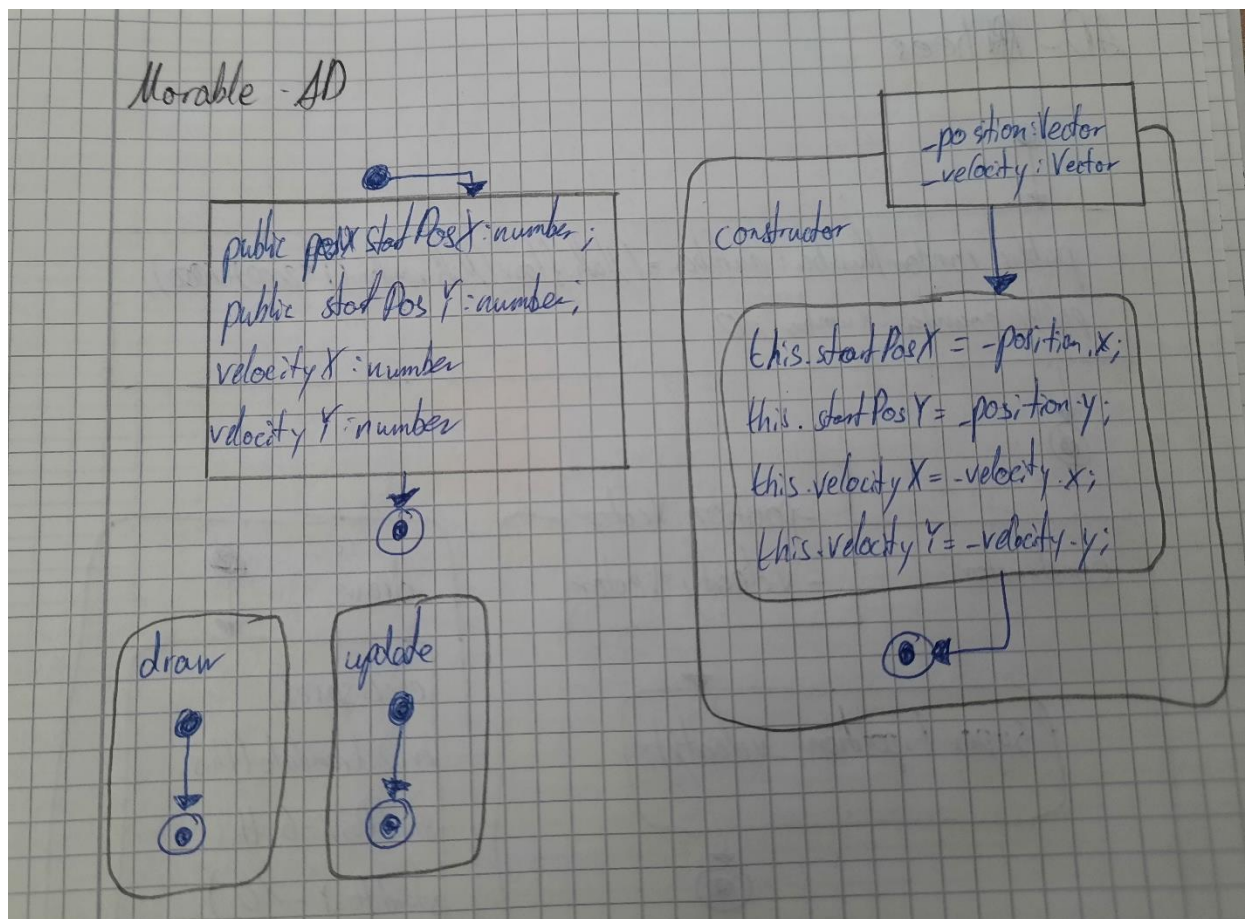 Movable - AD
public startPosX : number;
public startPosY : number;
velocityX : number
velocityY : number
draw
update
_position : Vector
_velocity : Vector
constructor
this.startPosX = _position.x;
this.startPosY = _position.y;
this.velocityX = _velocity.x;
this.velocityY = _velocity.y;